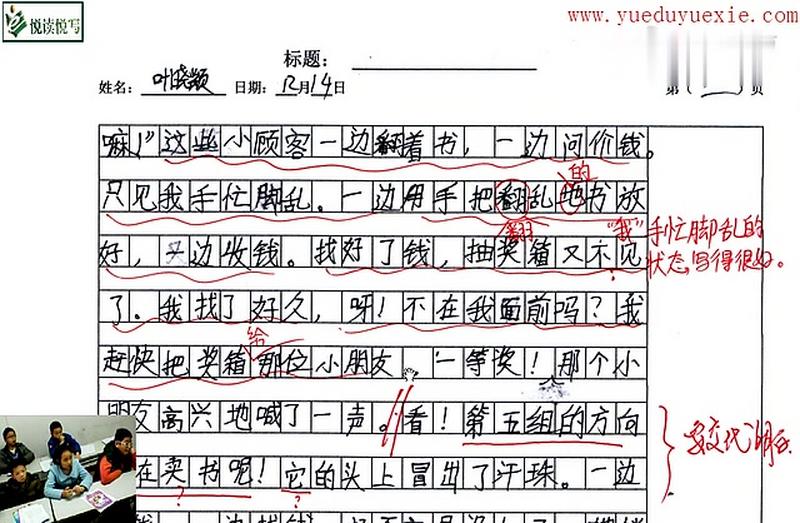 悦读悦写
www.yueduyuexie.com
标题：
姓名：叶晓颖 日期：12月14日
第（ ）页
嘛！”这些小顾客一边翻着书，一边问价钱。
的
只见我手忙脚乱。一边用手把翻乱地书放
翻
“我”手忙脚乱的
状态，写得很好。
好，一边收钱。找好了钱，抽奖箱又不见
了。我找了好久，呀！不在我面前吗？我
给
赶快把奖箱那位小朋友，一等奖！那个小
朋友高兴地喊了一声。看！第五组的方向
要交代
在卖书呢！它的头上冒出了汗珠。一边